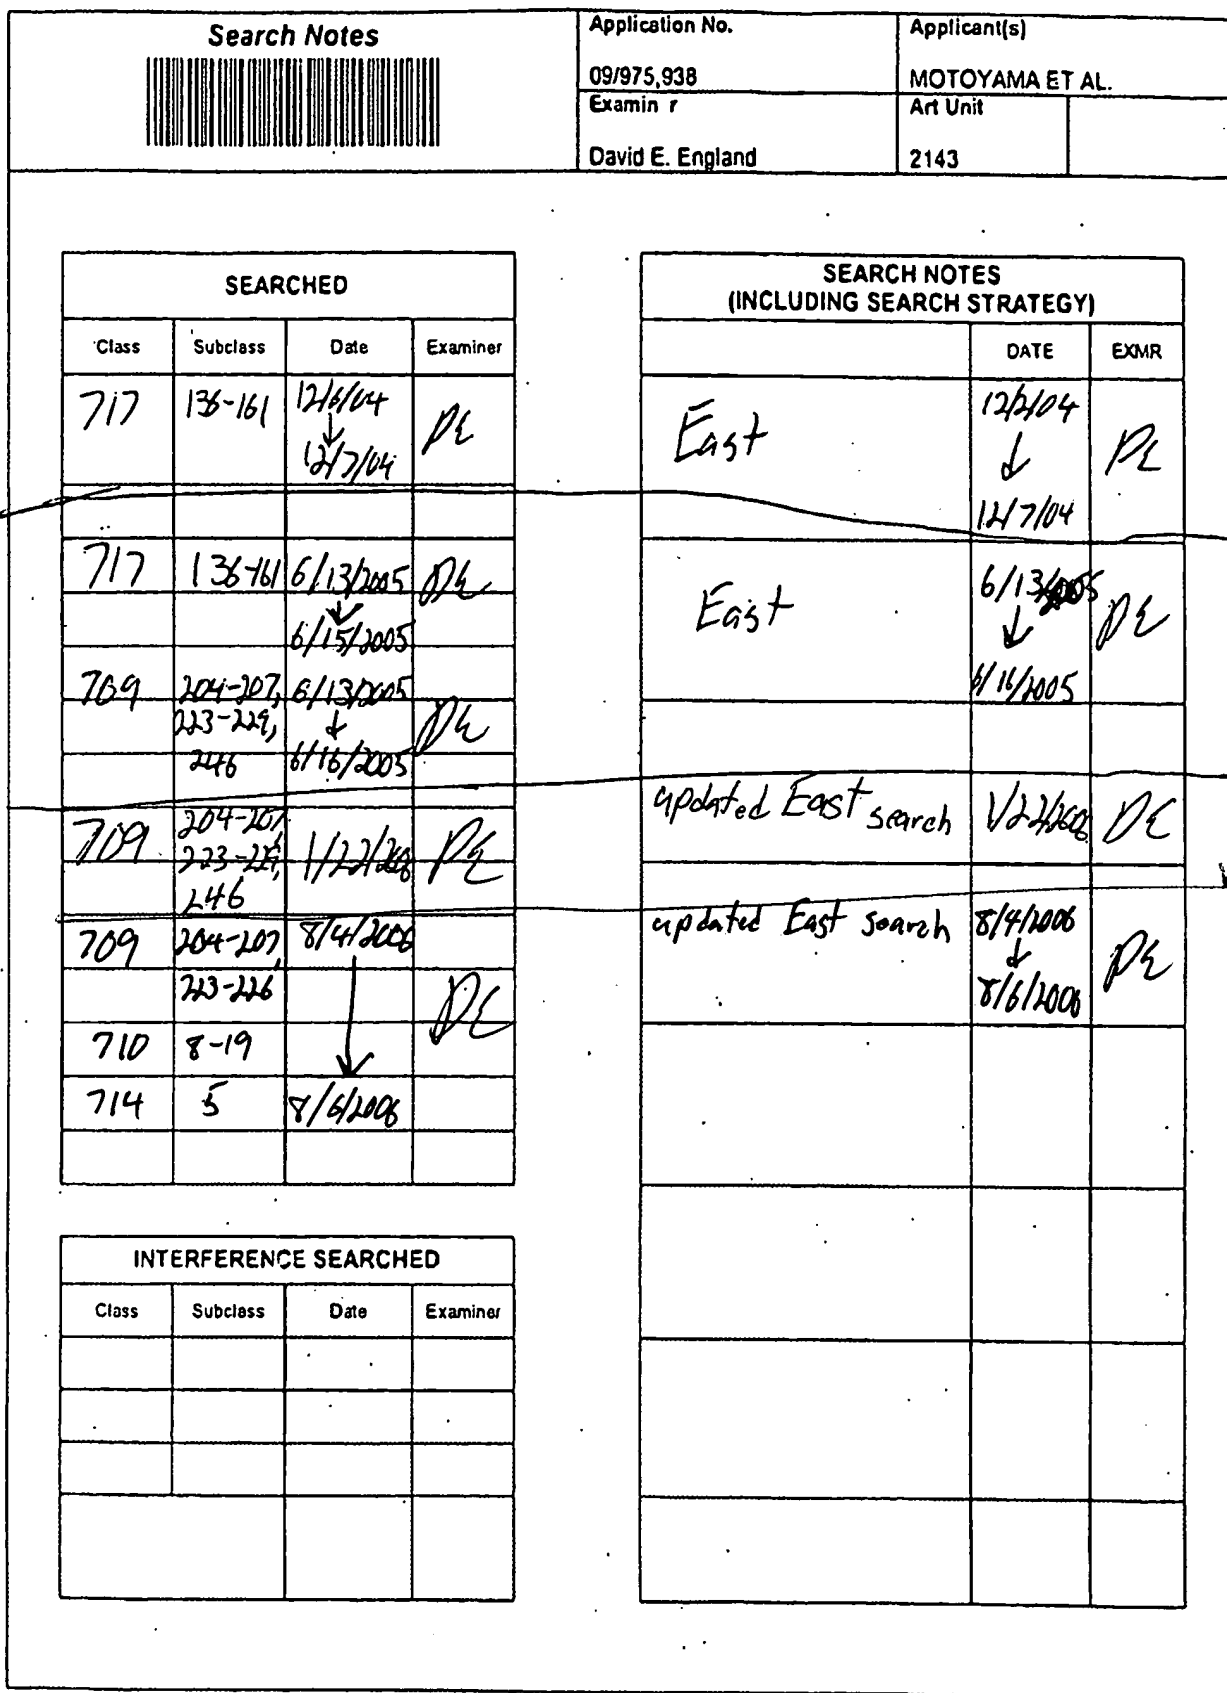 Search Notes
Application No.
09/975,938
Applicant(s)
MOTOYAMA ET AL.
Examin r
David E. England
Art Unit
2143
SEARCHED
Class Subclass Date Examiner
717 136-161 12/6/04 DE
12/7/04
717 136-161 6/13/2005 DE
6/15/2005
709 204-207, 6/13/2005
223-229, DE
246 6/16/2005
709 204-207,
223-229, 1/22/2006 DE
246
709 204-207, 8/4/2006
223-226 DE
710 8-19
714 5 8/6/2006
INTERFERENCE SEARCHED
Class Subclass Date Examiner
SEARCH NOTES
(INCLUDING SEARCH STRATEGY)
DATE EXMR
East 12/2/04 DE
12/7/04
East 6/13/2005 DE
6/16/2005
updated East search 1/22/2006 DE
updated East search 8/4/2006 DE
8/6/2006